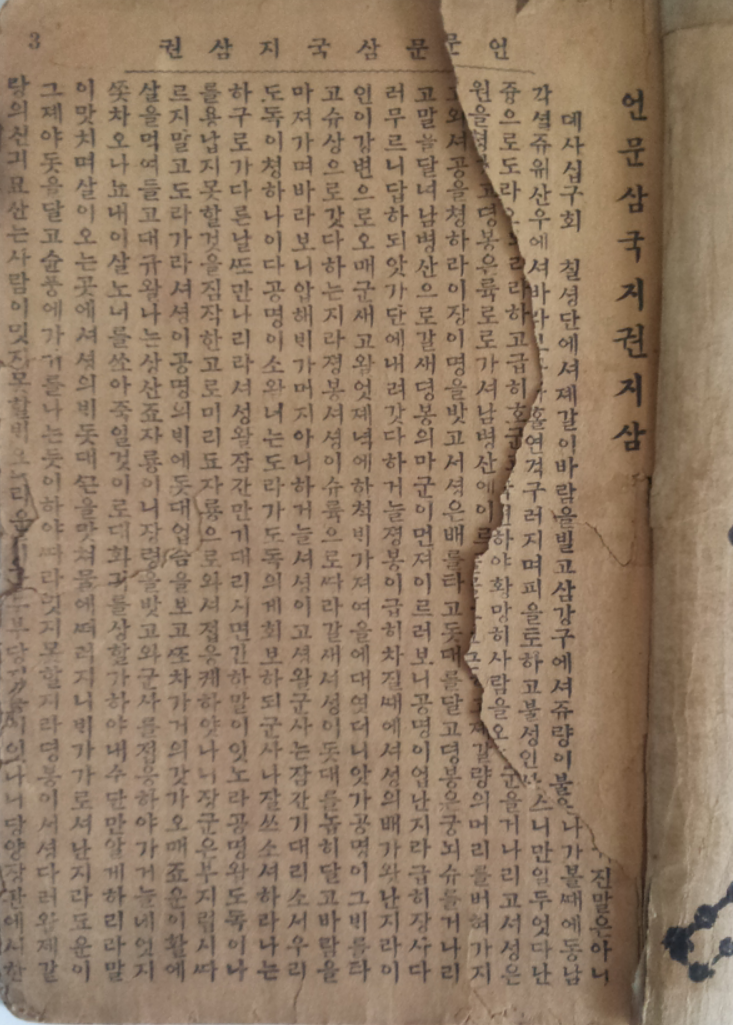 3
언문문삼국지삼권
언문삼국지권지삼
뎨사십구회 칠셩단에셔졔갈이바람을빌고삼강구에셔쥬량이불
진말은아니
나가볼때에동남
각셜쥬위산우에셔바라 홀연겨구러지며피을토하고불성인
스니만일두엇다난
쥬으로도라 라하고급히 하야황망히사람을오
군을거나리고서셩은
원을 고뎡봉은륙로로가셔남병산에이르
졔갈량의머리를버혀가지
와셔공을쳥하라이장이명을밧고서셩은배를타고돗대를달고뎡봉은궁뇌슈를거나리
고말을달녀남병산으로갈새뎡봉의마군이먼져이르러보니공명이업난지라급히장사다
러무르니답하되앗가단에내려갓다하거늘뎡봉이급히차질때에셔셩의배가왓난지라이
인이강변으로오매군새고왈엇졔녁에하쳑빅가져여을에대엿더니앗가공명이그빅를타
고슈상으로갓다하는지라졍봉셔셩이슈륙으로따라갈새서셩이돗대를놉히달고바람을
마져가며바라보니압해빅가머지아니하거늘셔셩이고셩왈군사는잠간기대리소서우리
도독이쳥하나이다공명이소왈너는도라가도독의게회보하되군사나잘쓰소셔하라나는
하구로가다른날또만나리라셔성왈잠간만기대리시면간하말이잇노라공명왈도독이나
를용납지못할것을짐작한고로미리됴자룡으로와셔졉응케하얏나니장군은부지럽시따
르지말고도라가라셔셩이공명의빅에돗대업슴을보고또차가거의갓가오매죠운이활에
살을먹여들고대규왈나는상산죠자룡이니장령을밧고와군사를졉응하야가거늘네엇지
쫏차오나뇨내이살노너를쏘아죽일것이로대화긔를상할가하야내수단만알게하리라말
이맛치며살이오는곳에셔셩의빅돗대끈을맛쳐물에떠러지니빅가가로셔난지라됴운이
그졔야돗을달고슌풍에가거를나는듯이하야따라밋지못할지라뎡봉이셔셩다려왈졔갈
랑의신긔묘산는사람이밋지못할 당양장판에서한